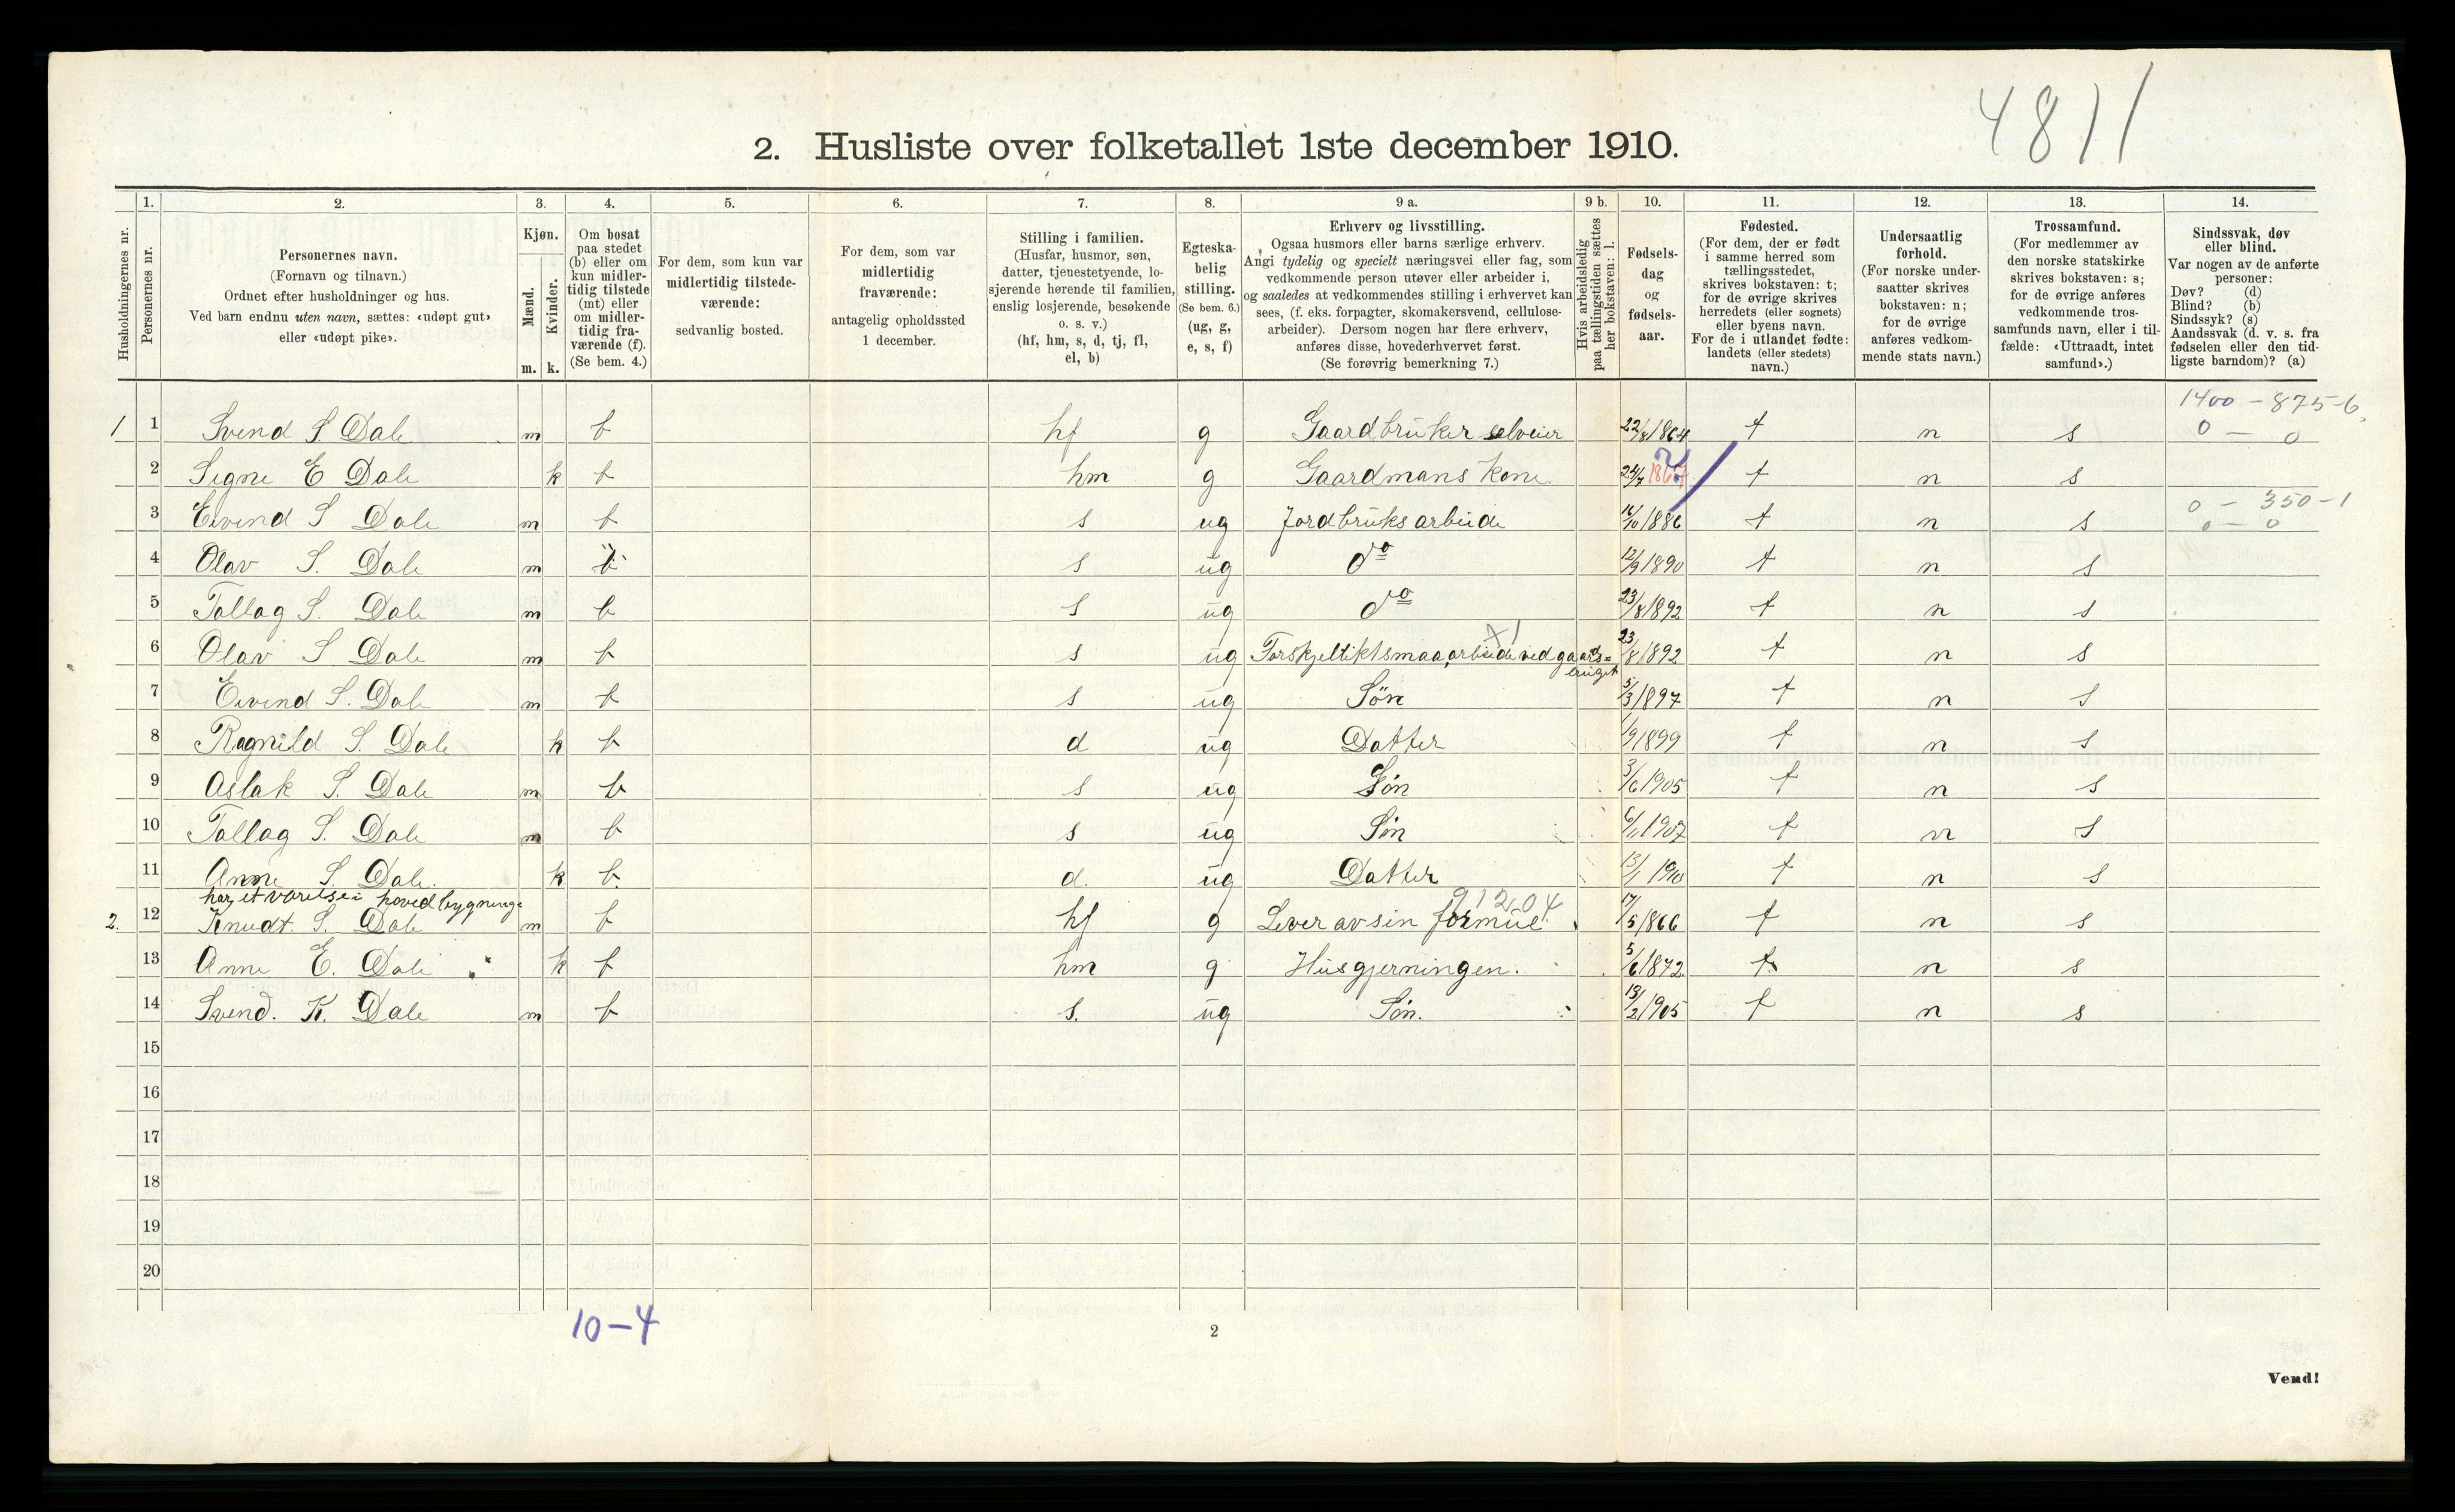 4811
2. Husliste over folketallet 1ste december 1910.
Husholdningernes nr.
1.
Personernes nr.
2.
Personernes navn.
(Fornavn og tilnavn.)
Ordnet efter husholdninger og hus.
Ved barn endnu uten navn, sættes: «udøpt gut»
eller «udøpt pike».
3.
Kjøn.
Mænd.
Kvinder.
m. k.
4.
Om bosat
paa stedet
(b) eller om
kun midler-
tidig tilstede
(mt) eller
om midler-
tidig fra-
værende (f).
(Se bem. 4.)
5.
For dem, som kun var
midlertidig tilstede-
værende:
sedvanlig bosted.
6.
For dem, som var
midlertidig
fraværende:
antagelig opholdssted
1 december.
7.
Stilling i familien.
(Husfar, husmor, søn,
datter, tjenestetyende, lo-
sjerende hørende til familien,
enslig losjerende, besøkende
o. s. v.)
(hf, hm, s, d, tj, fl,
el, b)
8.
Egteska-
belig
stilling.
(Se bem. 6.)
(ug, g,
e, s, f)
9 a.
Erhverv og livsstilling.
Ogsaa husmors eller barns særlige erhverv.
Angi tydelig og specielt næringsvei eller fag, som
vedkommende person utøver eller arbeider i,
og saaledes at vedkommendes stilling i erhvervet kan
sees, (f. eks. forpagter, skomakersvend, cellulose-
arbeider). Dersom nogen har flere erhverv,
anføres disse, hovederhvervet først.
(Se forøvrig bemerkning 7.)
9 b.
Hvis arbeidsledig
paa tællingstiden sættes
her bokstaven: l.
10.
Fødsels-
dag
og
fødsels-
aar.
11.
Fødested.
(For dem, der er født
i samme herred som
tællingsstedet,
skrives bokstaven: t;
for de øvrige skrives
herredets (eller sognets)
eller byens navn.
For de i utlandet fødte:
landets (eller stedets)
navn.)
12.
Undersaatlig
forhold.
(For norske under-
saatter skrives
bokstaven: n;
for de øvrige
anføres vedkom-
mende stats navn.)
13.
Trossamfund.
(For medlemmer av
den norske statskirke
skrives bokstaven: s;
for de øvrige anføres
vedkommende tros-
samfunds navn, eller i til-
fælde: «Uttraadt, intet
samfund».)
14.
Sindssvak, døv
eller blind.
Var nogen av de anførte
personer:
Døv? (d)
Blind? (b)
Sindssyk? (s)
Aandssvak (d. v. s. fra
fødselen eller den tid-
ligste barndom)? (a)
1400 - 875-6
1 1 Svend S. Dale m b hf g Gaardbruker selveier 22/8 1864 t n s 0 - 0
2 Signe E Dale k b hm g Gaardmans kone 24/7 t n s
0 - 350-1
3 Eivind S Dale m b s ug Jordbruksarbeide 16/10 1886 t n s 0 - 0
4 Olav S. Dale m b s ug do 12/9 1890 t n s
5 Tallag S. Dale m b s ug do 23/8 1892 t n s
6 Olav S Dale m b s ug Forskjelliktsmaaarbeide ved gaards= 23/8 1892 t n s
bruget
7 Eivend S. Dale m b s ug Søn 5/3 1897 t n s
8 Ragnild S. Dale k b d ug Datter 1/9 1899 t n s
9 Aslak S. Dale m b s ug Søn 3/6 1905 t n s
10 Tallag S. Dale m b s ug Søn 6/11 1907 t n s
11 Anne S. Dale. k b. d. ug Datter 13/1 1910 t n s
har et værelse i hovedbygning. 91204
2. 12 Knudt. S. Dale m b hf g Lever av sin formue. 17/5 1866 t n s
13 Anne E. Dale " k b hm g Husgjerningen. 5/6 1872 t n s
14 Svend. K. Dale m b s. ug Søn. 13/2 1905 t n s
15
16
17
18
19
20
10-4
2
Vend!